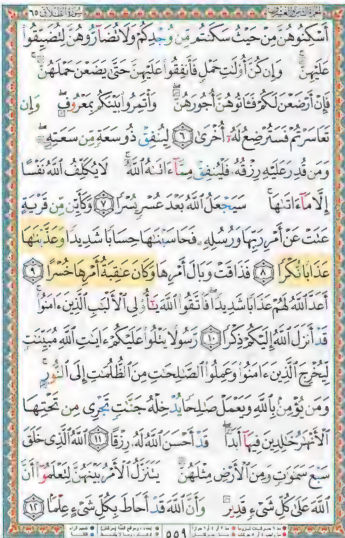 سورة الطلاق ٦٥
أَسْكِنُوهُنَّ مِنْ حَيْثُ سَكَنتُم مِّن وُجْدِكُمْ وَلَا تُضَآرُّوهُنَّ لِتُضَيِّقُوا۟
عَلَيْهِنَّ ۚ وَإِن كُنَّ أُو۟لَٰتِ حَمْلٍ فَأَنفِقُوا۟ عَلَيْهِنَّ حَتَّىٰ يَضَعْنَ حَمْلَهُنَّ ۚ
فَإِنْ أَرْضَعْنَ لَكُمْ فَـَٔاتُوهُنَّ أُجُورَهُنَّ ۖ وَأْتَمِرُوا۟ بَيْنَكُم بِمَعْرُوفٍ ۖ وَإِن
تَعَاسَرْتُمْ فَسَتُرْضِعُ لَهُۥٓ أُخْرَىٰ ٦ لِيُنفِقْ ذُو سَعَةٍ مِّن سَعَتِهِۦ ۖ
وَمَن قُدِرَ عَلَيْهِ رِزْقُهُۥ فَلْيُنفِقْ مِمَّآ ءَاتَىٰهُ ٱللَّهُ ۚ لَا يُكَلِّفُ ٱللَّهُ نَفْسًا
إِلَّا مَآ ءَاتَىٰهَا ۚ سَيَجْعَلُ ٱللَّهُ بَعْدَ عُسْرٍ يُسْرًا ٧ وَكَأَيِّن مِّن قَرْيَةٍ
عَتَتْ عَنْ أَمْرِ رَبِّهَا وَرُسُلِهِۦ فَحَاسَبْنَٰهَا حِسَابًا شَدِيدًا وَعَذَّبْنَٰهَا
عَذَابًا نُّكْرًا ٨ فَذَاقَتْ وَبَالَ أَمْرِهَا وَكَانَ عَٰقِبَةُ أَمْرِهَا خُسْرًا ٩
أَعَدَّ ٱللَّهُ لَهُمْ عَذَابًا شَدِيدًا ۖ فَٱتَّقُوا۟ ٱللَّهَ يَٰٓأُو۟لِى ٱلْأَلْبَٰبِ ٱلَّذِينَ ءَامَنُوا۟ ۚ
قَدْ أَنزَلَ ٱللَّهُ إِلَيْكُمْ ذِكْرًا ١٠ رَّسُولًا يَتْلُوا۟ عَلَيْكُمْ ءَايَٰتِ ٱللَّهِ مُبَيِّنَٰتٍ
لِّيُخْرِجَ ٱلَّذِينَ ءَامَنُوا۟ وَعَمِلُوا۟ ٱلصَّٰلِحَٰتِ مِنَ ٱلظُّلُمَٰتِ إِلَى ٱلنُّورِ ۚ
وَمَن يُؤْمِنۢ بِٱللَّهِ وَيَعْمَلْ صَٰلِحًا يُدْخِلْهُ جَنَّٰتٍ تَجْرِى مِن تَحْتِهَا
ٱلْأَنْهَٰرُ خَٰلِدِينَ فِيهَآ أَبَدًا ۖ قَدْ أَحْسَنَ ٱللَّهُ لَهُۥ رِزْقًا ١١ ٱللَّهُ ٱلَّذِى خَلَقَ
سَبْعَ سَمَٰوَٰتٍ وَمِنَ ٱلْأَرْضِ مِثْلَهُنَّ ۖ يَتَنَزَّلُ ٱلْأَمْرُ بَيْنَهُنَّ لِتَعْلَمُوٓا۟ أَنَّ
ٱللَّهَ عَلَىٰ كُلِّ شَىْءٍ قَدِيرٌ وَأَنَّ ٱللَّهَ قَدْ أَحَاطَ بِكُلِّ شَىْءٍ عِلْمًۢا ١٢
٥٥٩